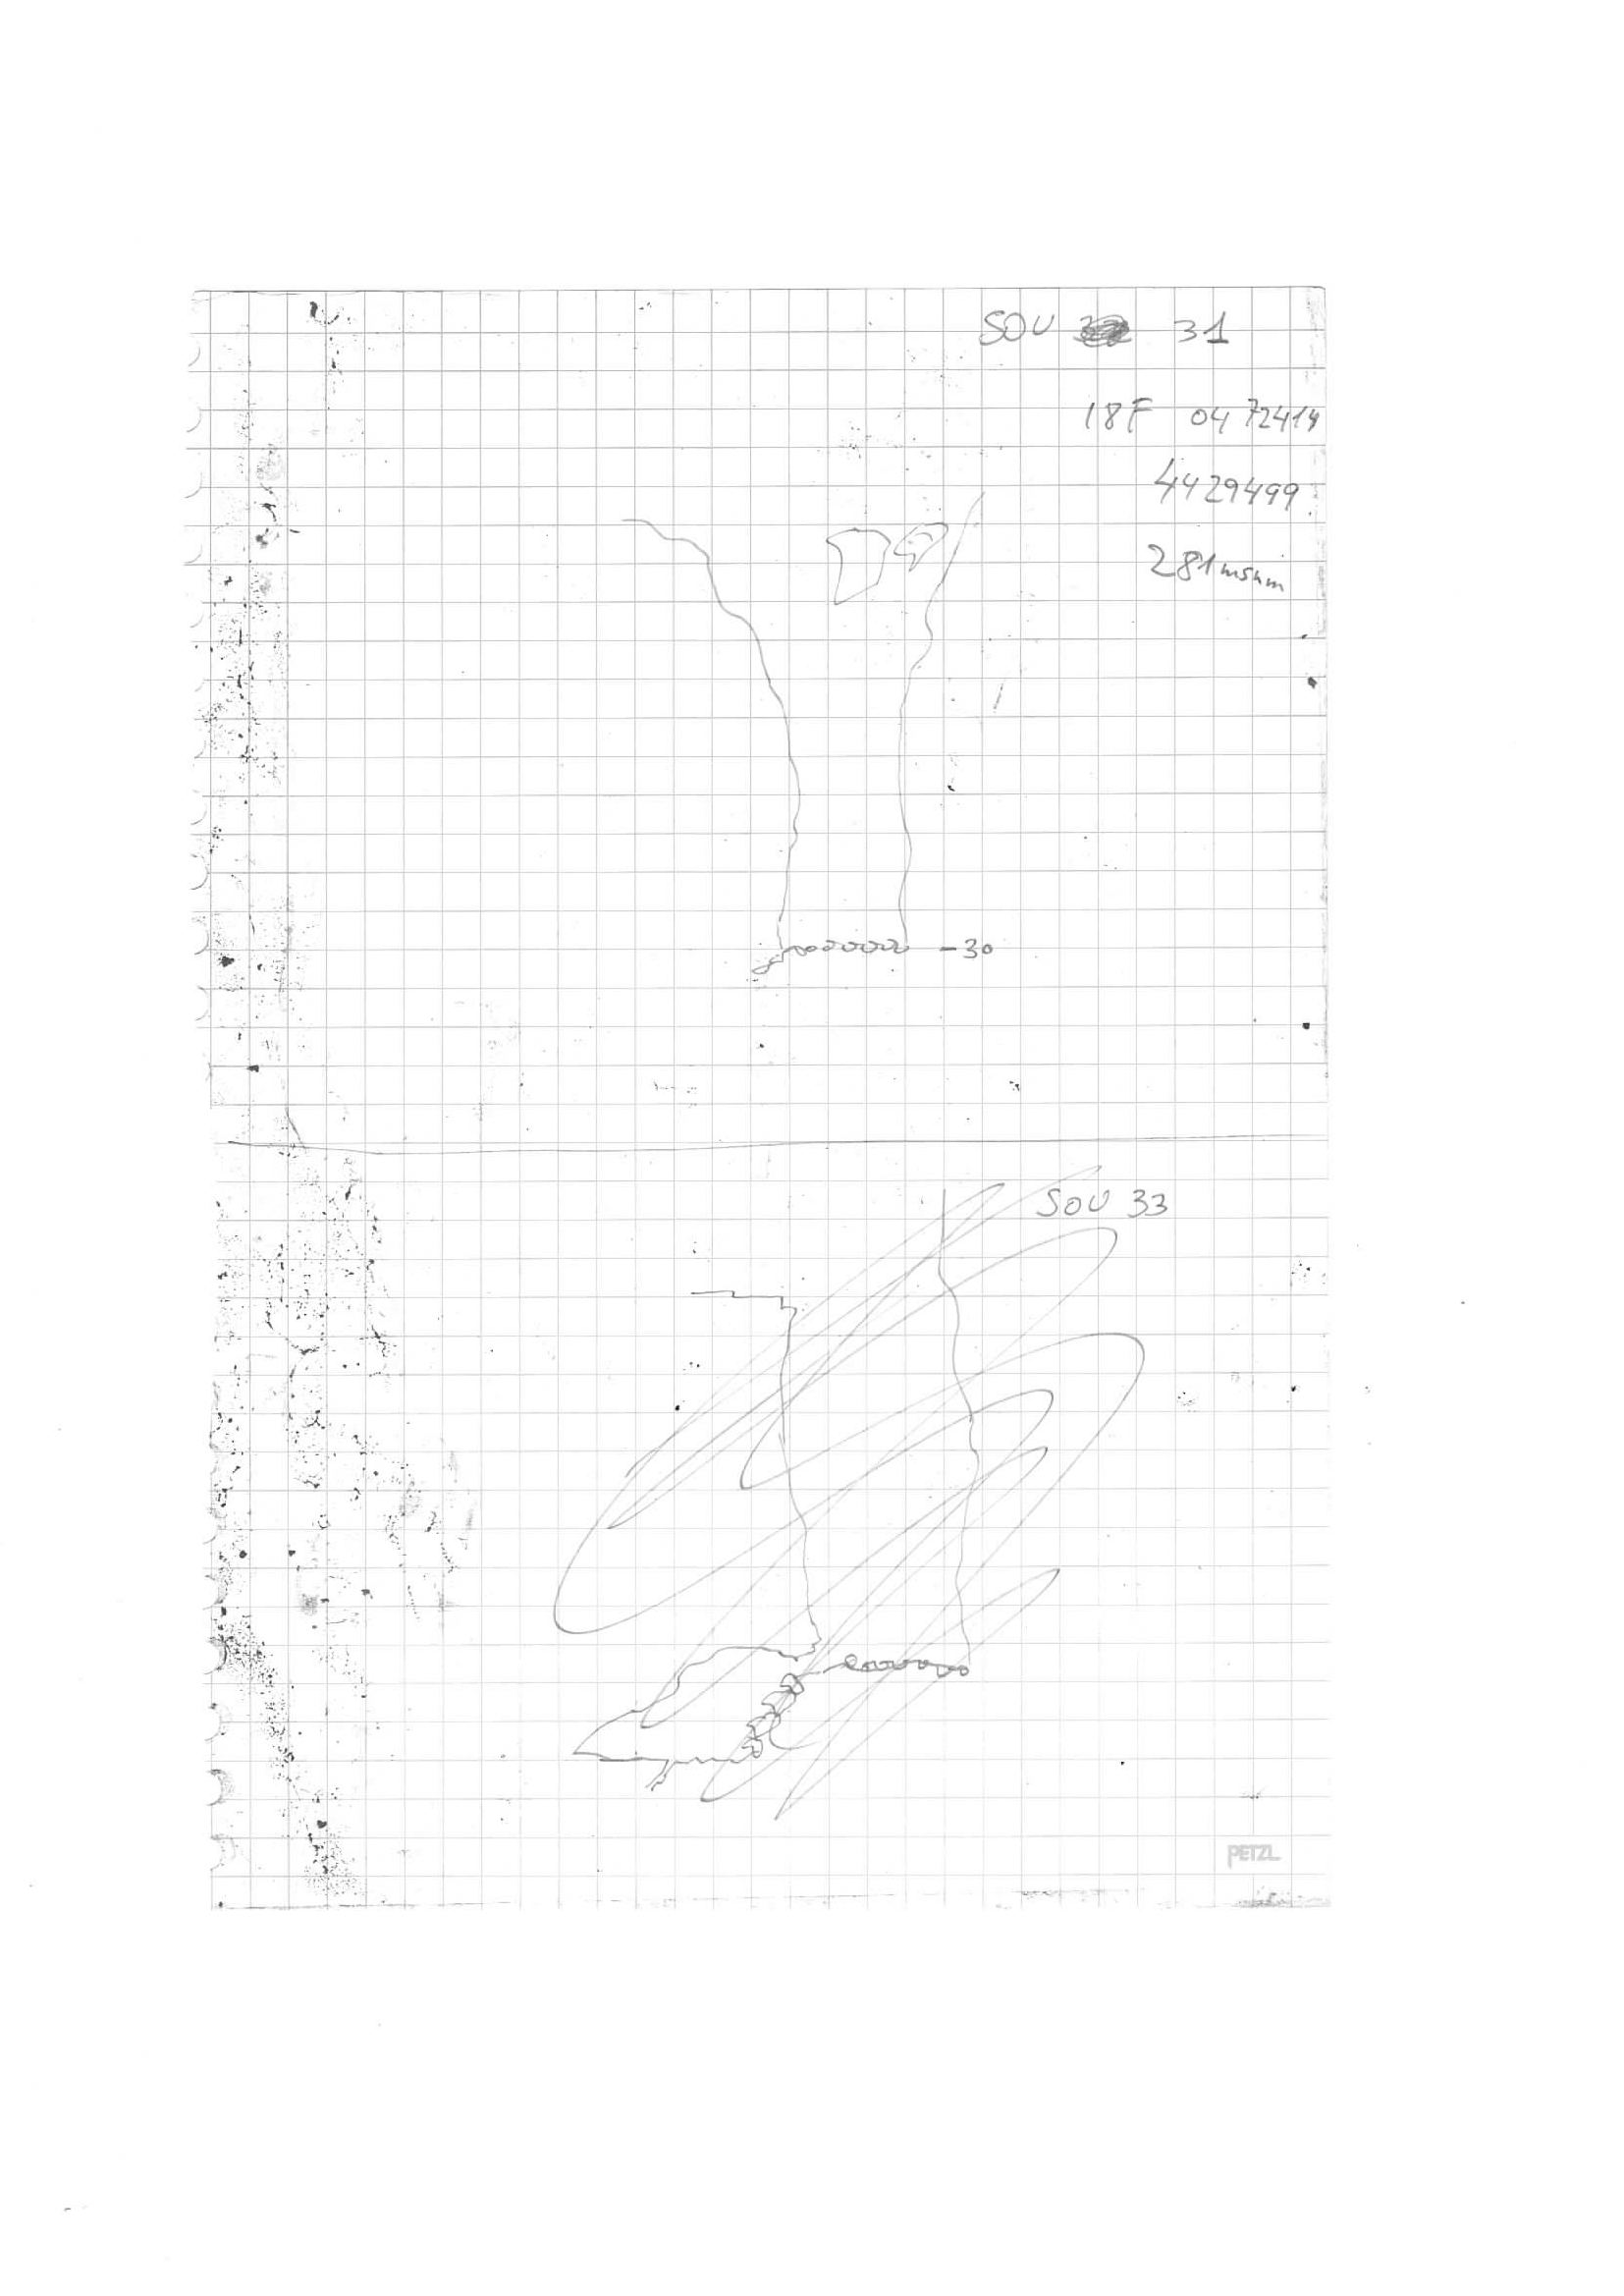 SOU 31
18F 0472414
4429499
281 msnm
-30
SOU 33
PETZL